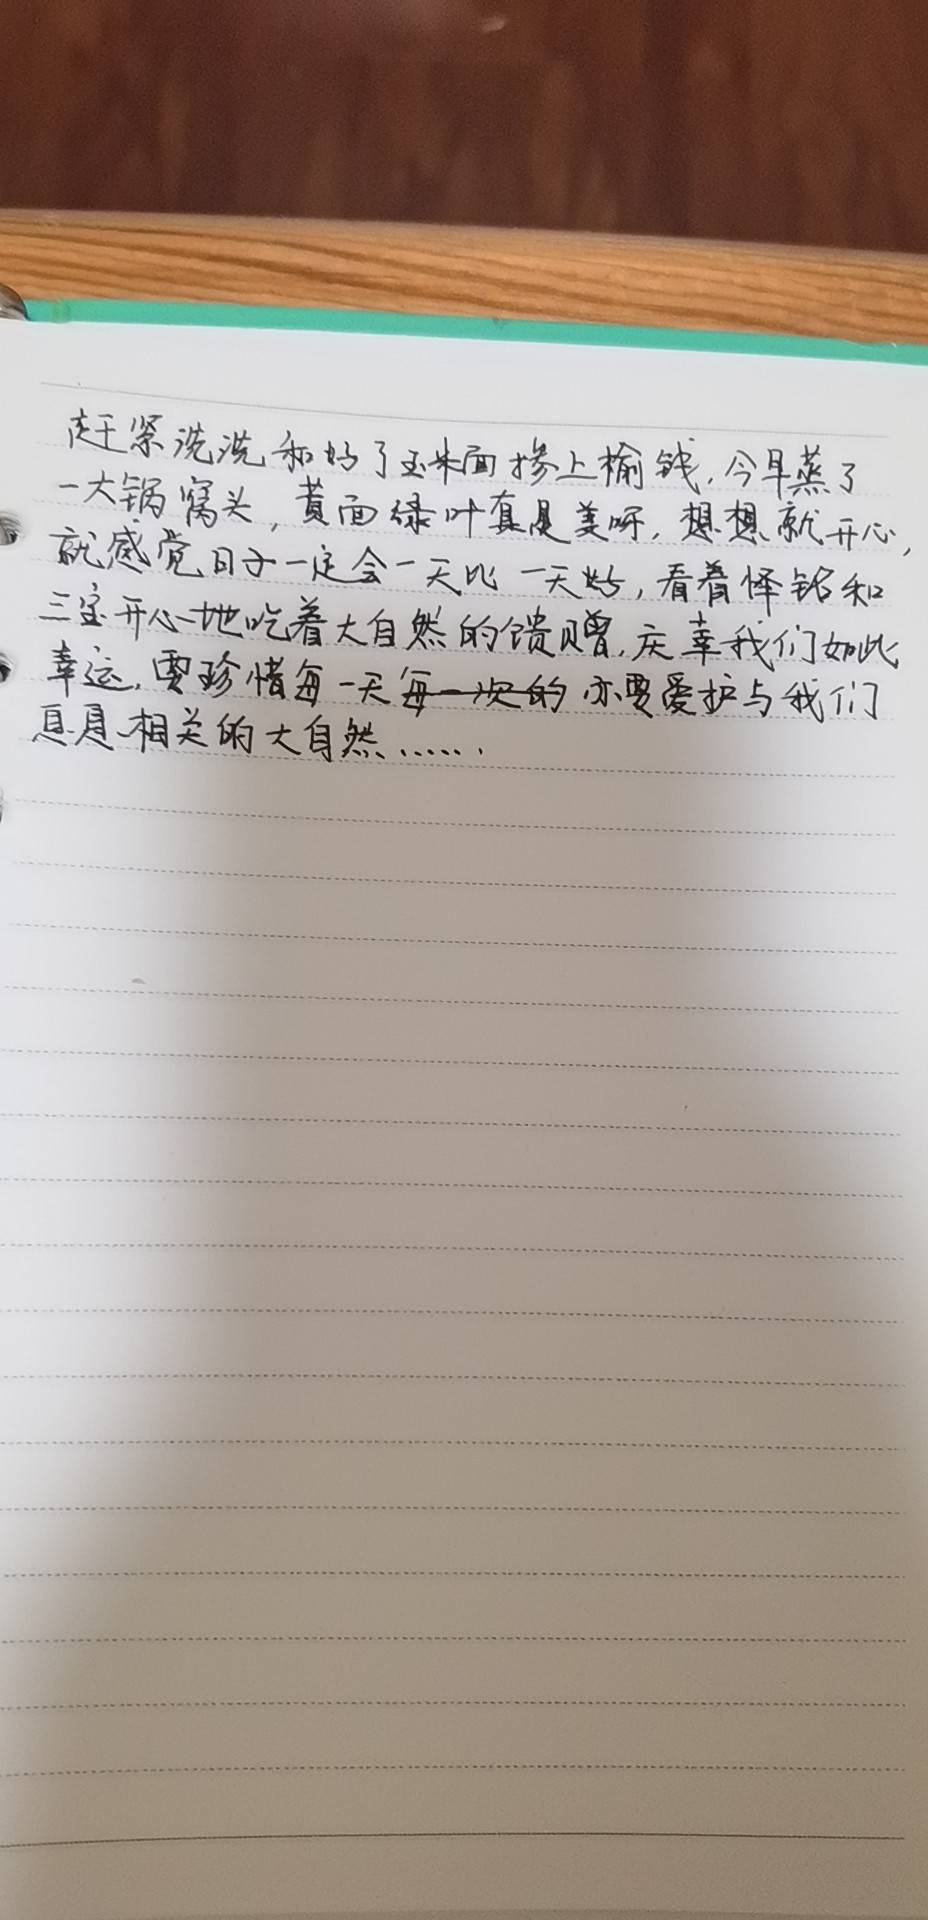 赶紧洗洗和好了玉米面掺上榆钱,今早蒸了
一大锅窝头,黄面绿叶真是美呀,想想就开心,
就感觉日子一定会一天比一天好,看着怿铭和
三宝开心地吃着大自然的馈赠,庆幸我们如此
幸运,要珍惜每一天每一次的亦要爱护与我们
息息相关的大自然……